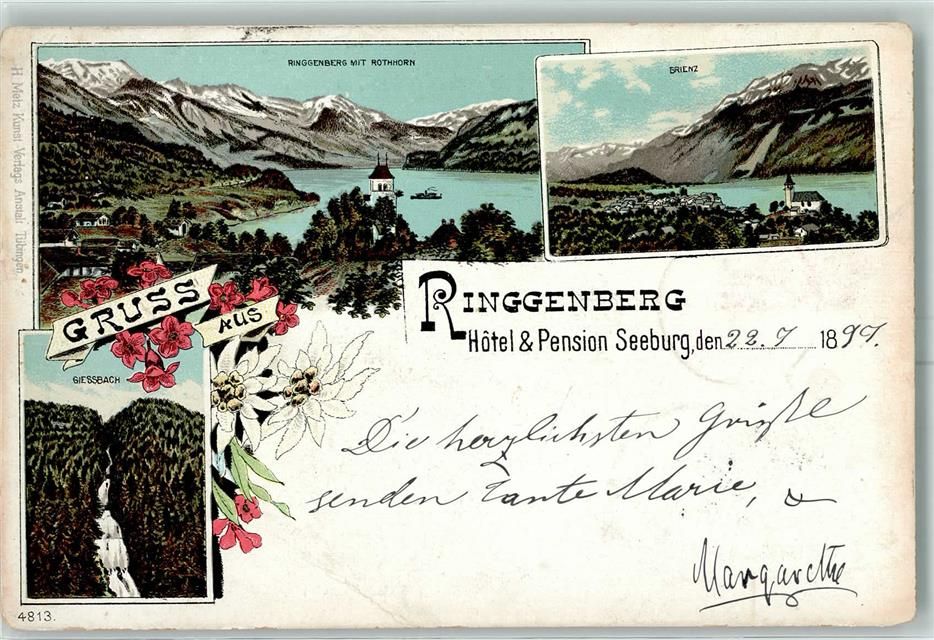 RINGGENBERG MIT ROTHHORN
BRIENZ
H. Metz Kunst Verlags Anstalt Tübingen.
GRUSS
AUS
RINGGENBERG
Hôtel & Pension Seeburg, den 22.7 1897.
GIESSBACH
Die herzlichsten Grüße
senden Tante Marie, &
Margarethe
4813.